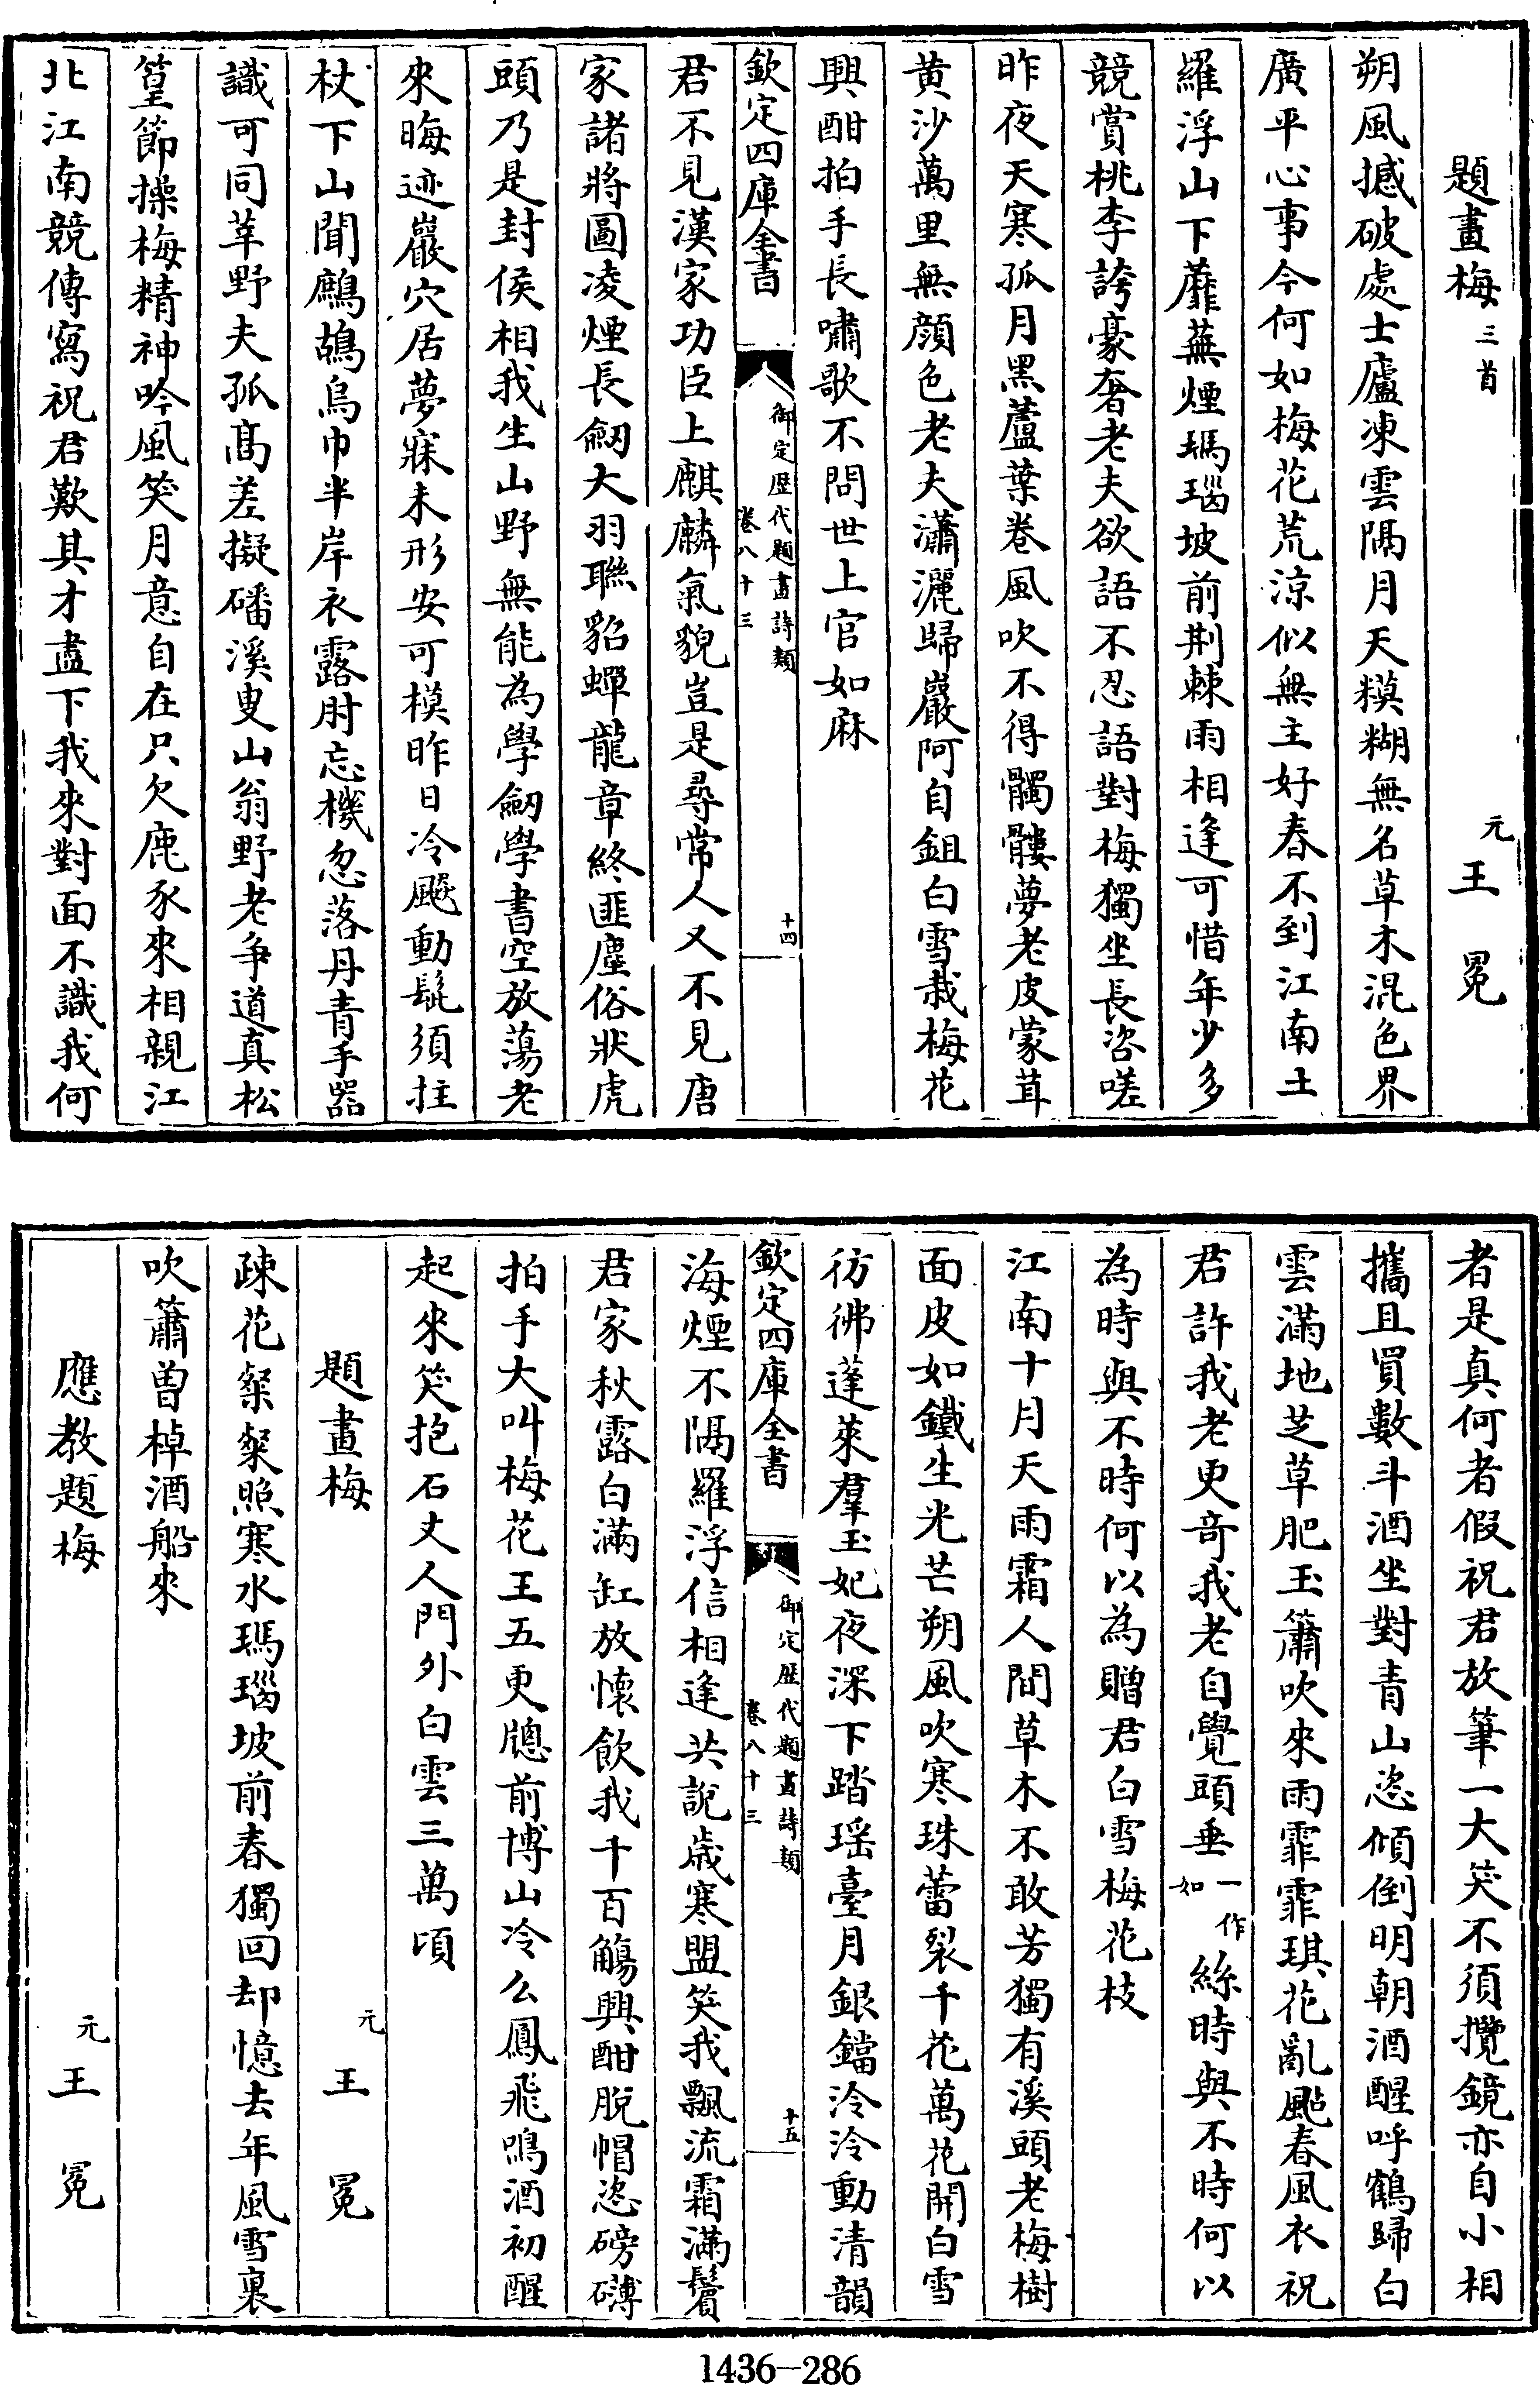 題畫梅三首 元王冕
朔風撼破處士廬凍雲隔月天糢糊無名草木混色界
廣平心事今何如梅花荒涼似無主好春不到江南土
羅浮山下蘼蕪煙瑪瑙坡前荆棘雨相逢可惜年少多
競賞桃李誇豪奢老夫欲語不忍語對梅獨坐長咨嗟
昨夜天寒孤月黑蘆葉卷風吹不得髑髏夢老皮蒙茸
黄沙萬里無顔色老夫瀟灑歸巖阿自鉏白雪栽梅花
興酣拍手長嘯歌不問世上官如麻
欽定四庫全書 御定歴代題畫詩類 卷八十三 十四
君不見漢家功臣上麒麟氣貌豈是尋常人又不見唐
家諸將圖凌煙長劒大羽聯貂蟬龍章終匪塵俗狀虎
頭乃是封侯相我生山野無能為學劒學書空放蕩老
來晦迹巖穴居夢寐未形安可模昨日冷飈動髭須拄
杖下山聞鷓鴣烏巾半岸衣露肘忘機忽落丹青手器
識可同莘野夫孤高差擬磻溪叟山翁野老争道真松
篁節操梅精神吟風笑月意自在只欠鹿豕來相親江
北江南競傳寫祝君歎其才盡下我來對面不識我何
者是真何者假祝君放筆一大笑不須攬鏡亦自小相
攜且買數斗酒坐對青山恣傾倒明朝酒醒呼鶴歸白
雲滿地芝草肥玉簫吹來雨霏霏琪花亂颭春風衣祝
君許我老更竒我老自覺頭垂一作如絲時與不時何以
為時與不時何以為贈君白雪梅花枝
江南十月天雨霜人間草木不敢芳獨有溪頭老梅樹
面皮如鐵生光芒朔風吹寒珠蕾裂千花萬花開白雪
彷彿蓬萊羣玉妃夜深下踏瑶臺月銀鐺泠泠動清韻
欽定四庫全書 御定歴代題畫詩類 卷八十三 十五
海煙不隔羅浮信相逢共說歲寒盟笑我飄流霜滿鬢
君家秋露白滿缸放懷飲我千百觴興酣脫帽恣磅礴
拍手大叫梅花王五更牕前博山冷么鳳飛鳴酒初醒
起來笑抱石丈人門外白雲三萬頃
題畫梅 元王冕
疎花粲粲照寒水瑪瑙坡前春獨回却憶去年風雪裏
吹簫曽棹酒船來
應教題梅 元王冕
1436-286